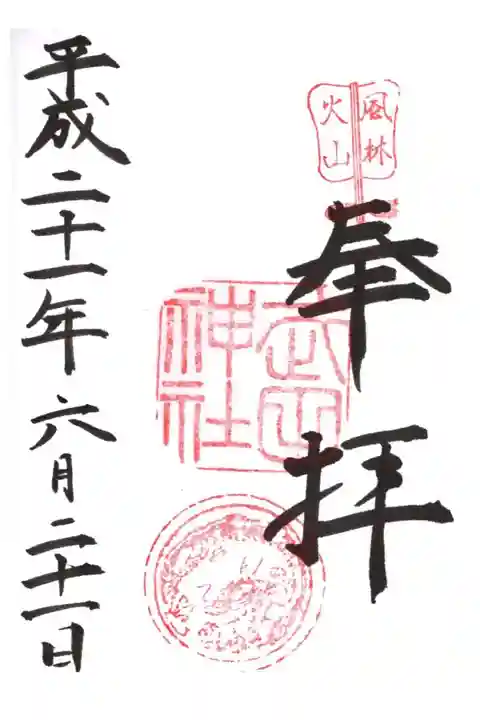 奉拝
風林
火山
武田
神社
平成二十一年六月二十一日